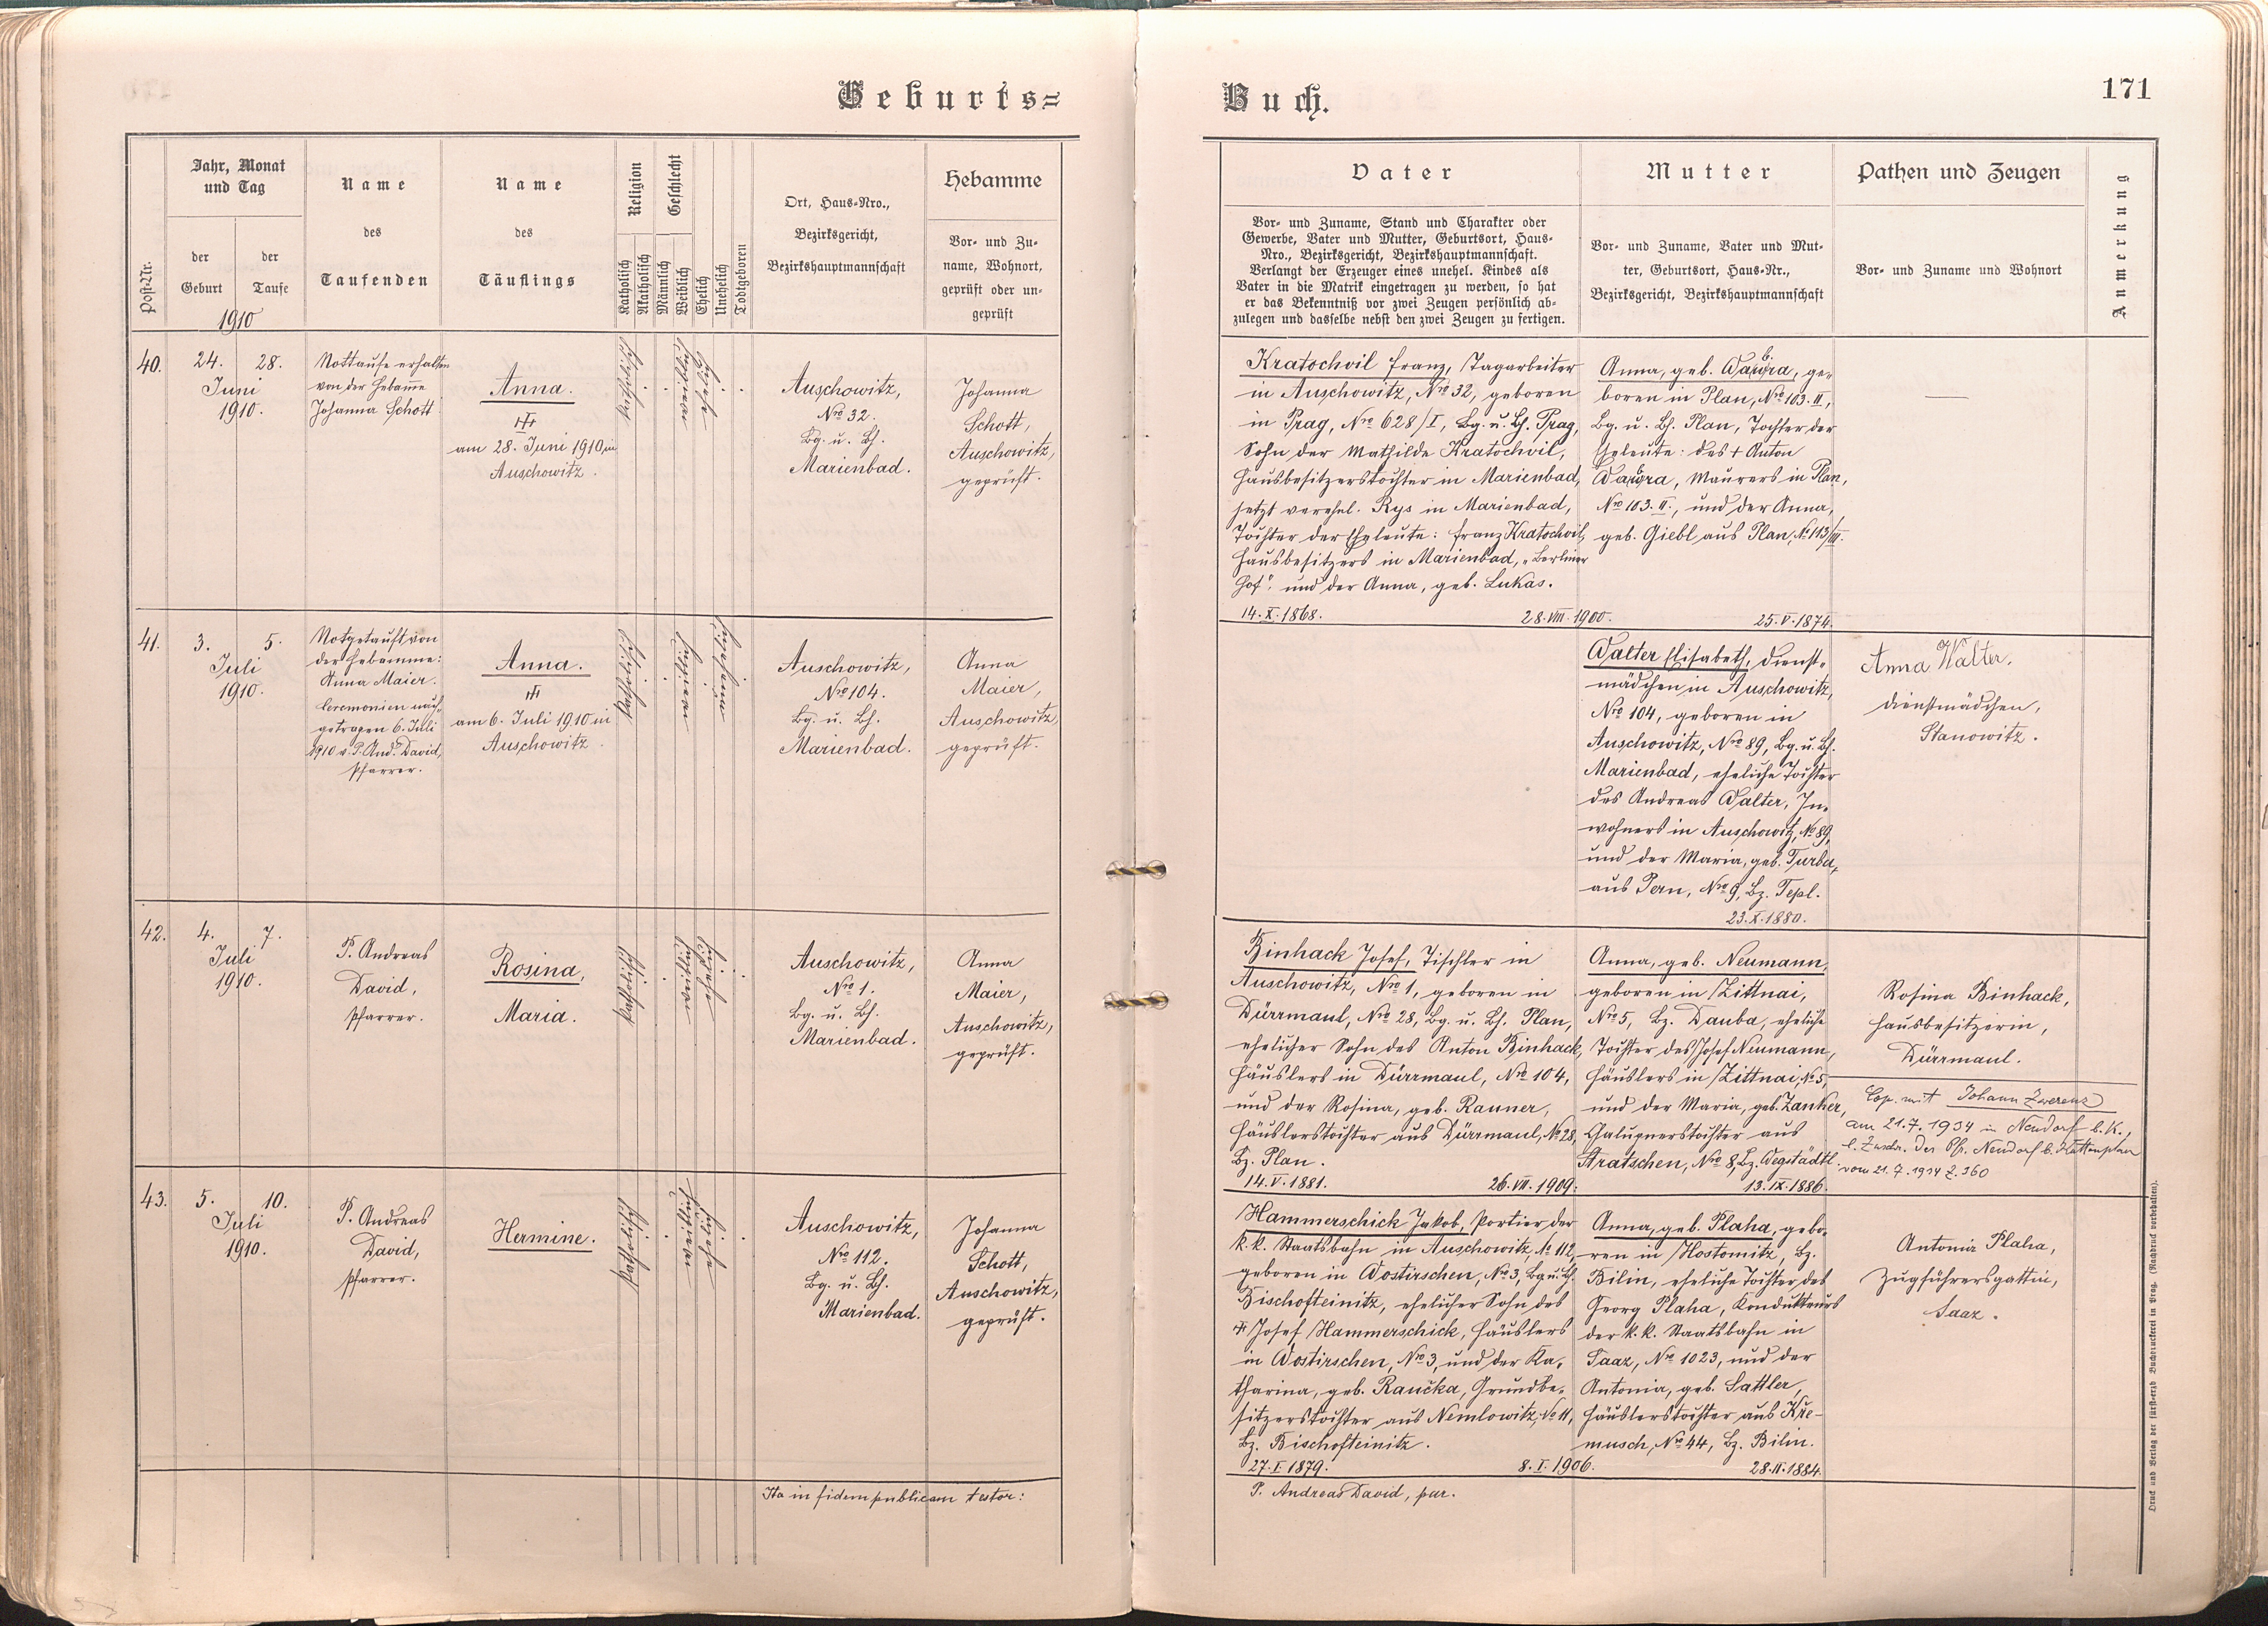 Geburts=
Buch.
171
Post-Nr.
Jahr, Monat
und Tag
der
Geburt
der
Taufe
1910
Name
des
Taufenden
Name
des
Täuflings
Religion
Katholisch
Akatholisch
Geschlecht
Männlich
Weiblich
Ehelich
Unehelich
Todtgeboren
Ort, Haus-Nro.,
Bezirksgericht,
Bezirkshauptmannschaft
Hebamme
Vor- und Zu-
name, Wohnort,
geprüft oder un-
geprüft
Vater
Vor- und Zuname, Stand und Charakter oder
Gewerbe, Vater und Mutter, Geburtsort, Haus-
Nro., Bezirksgericht, Bezirkshauptmannschaft.
Verlangt der Erzeuger eines unehel. Kindes als
Vater in die Matrik eingetragen zu werden, so hat
er das Bekenntniß vor zwei Zeugen persönlich ab-
zulegen und dasselbe nebst den zwei Zeugen zu fertigen.
Mutter
Vor- und Zuname, Vater und Mut-
ter, Geburtsort, Haus-Nr.,
Bezirksgericht, Bezirkshauptmannschaft
Pathen und Zeugen
Vor- und Zuname und Wohnort
Anmerkung
40.
24. 28.
Juni
1910.
Nottaufe erhalten
von der Hebamme
Johanna Schott
Anna.
am 28. Juni 1910 in
Auschowitz.
katholisch
weiblich
ehelich
Auschowitz,
Nro 32.
Bg. u. Bh.
Marienbad.
Johanna
Schott,
Auschowitz,
geprüft.
Kratochvil Franz, Tagarbeiter
in Auschowitz, Nro 32, geboren
in Prag, Nro 628/I, Bg. u. Bh. Prag,
Sohn der Mathilde Kratochvil,
Hausbesitzerstochter in Marienbad,
jetzt verehel. Rys in Marienbad,
Tochter der Eheleute: Franz Kratochvil,
Hausbesitzers in Marienbad, „Berliner
Hof" und der Anna, geb. Lukas.
14. X. 1868. 28. VIII. 1900. 25. V. 1874.
Anna, geb. ge-
boren in Plan, Nro 103. II,
Bg. u. Bh. Plan, Tochter der
Eheleute: des + Anton
Maurers in Plan,
Nro 103. II., und der Anna,
geb. Giebl aus Plan, No 113/III.
41.
3. 5.
Juli
1910.
Notgetauft von
der Hebamme:
Anna Maier.
Ceremonien nach-
getragen 6. Juli
1910 v. P. And. David,
Pfarrer.
Anna.
am 6. Juli 1910 in
Auschowitz.
katholisch
weiblich
unehelich
Auschowitz,
Nro 104.
Bg. u. Bh.
Marienbad.
Anna
Maier,
Auschowitz,
geprüft.
Walter Elisabeth, Dienst-
mädchen in Auschowitz,
Nro 104, geboren in
Auschowitz, Nro 89, Bg. u. Bh.
Marienbad, eheliche Tochter
des Andreas Walter, In-
wohners in Auschowitz, No 89,
und der Maria, geb. Turba,
aus Pern, Nro 9, Bz. Tepl.
23. X. 1880.
Anna Walter.
Dienstmädchen,
Stanowitz.
42.
4. 7.
Juli
1910.
P. Andreas
David,
Pfarrer.
Rosina,
Maria.
katholisch
weiblich
ehelich
Auschowitz,
Nro 1.
Bg. u. Bh.
Marienbad.
Anna
Maier,
Auschowitz,
geprüft.
Binhack Josef, Tischler in
Auschowitz, Nro 1, geboren in
Dürrmaul, Nro 28, Bg. u. Bh. Plan,
ehelicher Sohn des Anton Binhack,
Häuslers in Dürrmaul, Nro 104,
und der Rosina, geb. Rauner,
Häuslerstochter aus Dürrmaul, No 28,
Bz. Plan.
14. V. 1881. 26. VII. 1909. 13. IX. 1886.
Anna, geb. Neumann,
geboren in Zittnai,
Nro 5, Bz. Dauba, eheliche
Tochter des Josef Neumann,
Häuslers in Zittnai, No 5,
und der Maria, geb. Zanker,
Chaluppnerstochter aus
Stratschen, Nro 8, Bz. Wegstädtl.
Rosina Binhack,
Hausbesitzerin,
Dürrmaul.
Cop. mit Johann Zwerenz
am 21. 7. 1934 in Neudorf b. K.,
l. Zuschr. des Pfr. Neudorf b.
vom 21. 7. 1934 Z. 360
43.
5. 10.
Juli
1910.
P. Andreas
David,
Pfarrer.
Hermine.
katholisch
weiblich
ehelich
Auschowitz,
Nro 112.
Bg. u. Bh.
Marienbad.
Johanna
Schott,
Auschowitz,
geprüft.
Hammerschick Jakob, Portier der
k. k. Staatsbahn in Auschowitz, No 112,
geboren in Wostirschen, No 3, Bg. u. Bh.
Bischofteinitz, ehelicher Sohn des
Josef Hammerschick, Häuslers
in Wostirschen, Nro 3, und der Ka-
tharina, geb. Raučka, Grundbe-
sitzerstochter aus Nemlowitz, No 11,
Bz. Bischofteinitz.
27. I. 1879. 8. I. 1906. 28. II. 1884.
Anna, geb. Plaha, gebo-
ren in Hostomitz, Bz.
Bilin, eheliche Tochter des
Georg Plaha, Kondukteurs
der k. k. Staatsbahn in
Saaz, Nro 1023, und der
Antonia, geb. Sattler,
Häuslerstochter aus Kře-
musch, Nro 44, Bz. Bilin.
Antonia Plaha,
Zugführersgattin,
Saaz.
Ita in fidem publicam testor:
P. Andreas David, par.
Druck und Verlag der fürst-erzb Buchdruckerei in Prag. (Nachdruck vorbehalten).